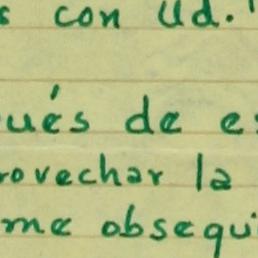 s con Ud."
ués de es
rovechar la
me obsequi